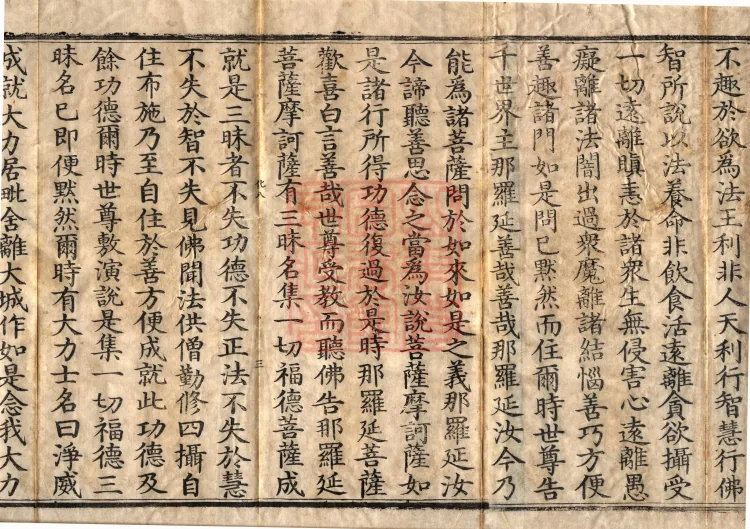 不趣於欲為法王利非人天利行智慧行佛
智所說以法養命非飲食活遠離貪欲攝受
一切遠離瞋恚於諸眾生無侵害心遠離愚
癡離諸法闇出過衆魔離諸結惱善巧方便
善趣諸門如是問已默然而住爾時世尊告
千世界主那羅延善哉善哉那羅延汝今乃
能為諸菩薩問於如來如是之義那羅延汝
今諦聽善思念之當為汝說菩薩摩訶薩如
是諸行所得功德復過於是時那羅延菩薩
歡喜白言善哉世尊受教而聽佛告那羅延
菩薩摩訶薩有三昧名集一切福德菩薩成
就是三昧者不失功德不失正法不失於慧
不失於智不失見佛聞法供僧勤修四攝自
住布施乃至自住於善方便成就此功德及
餘功德爾時世尊敷演說是集一切福德三
昧名已即便默然爾時有大力士名曰淨威
成就大力居毗舍離大城作如是念我大力